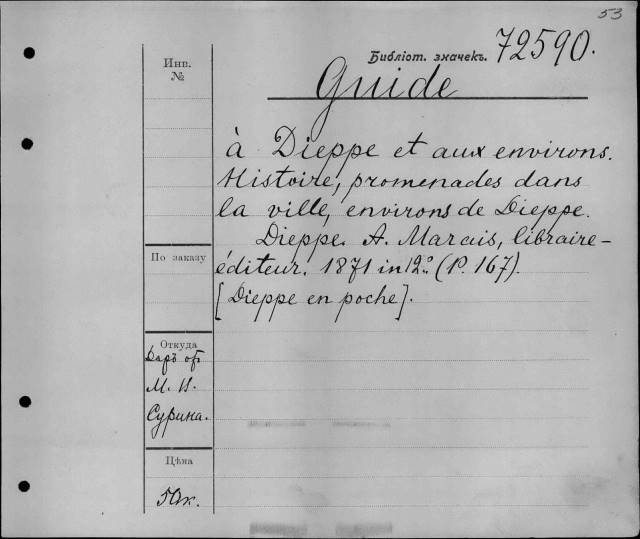 53
Библіот. значекъ. 72590.
Guide
à Dieppe et aux environs.
Histoire, promenades dans
la ville, environs de Dieppe.
Dieppe. A. Marais, libraire-
éditeur. 1871 in 12° (P. 167).
[Dieppe en poche].
Инв.
№
По заказу
Откуда
Даръ от
М. И.
Сурина.
Цѣна
50к.